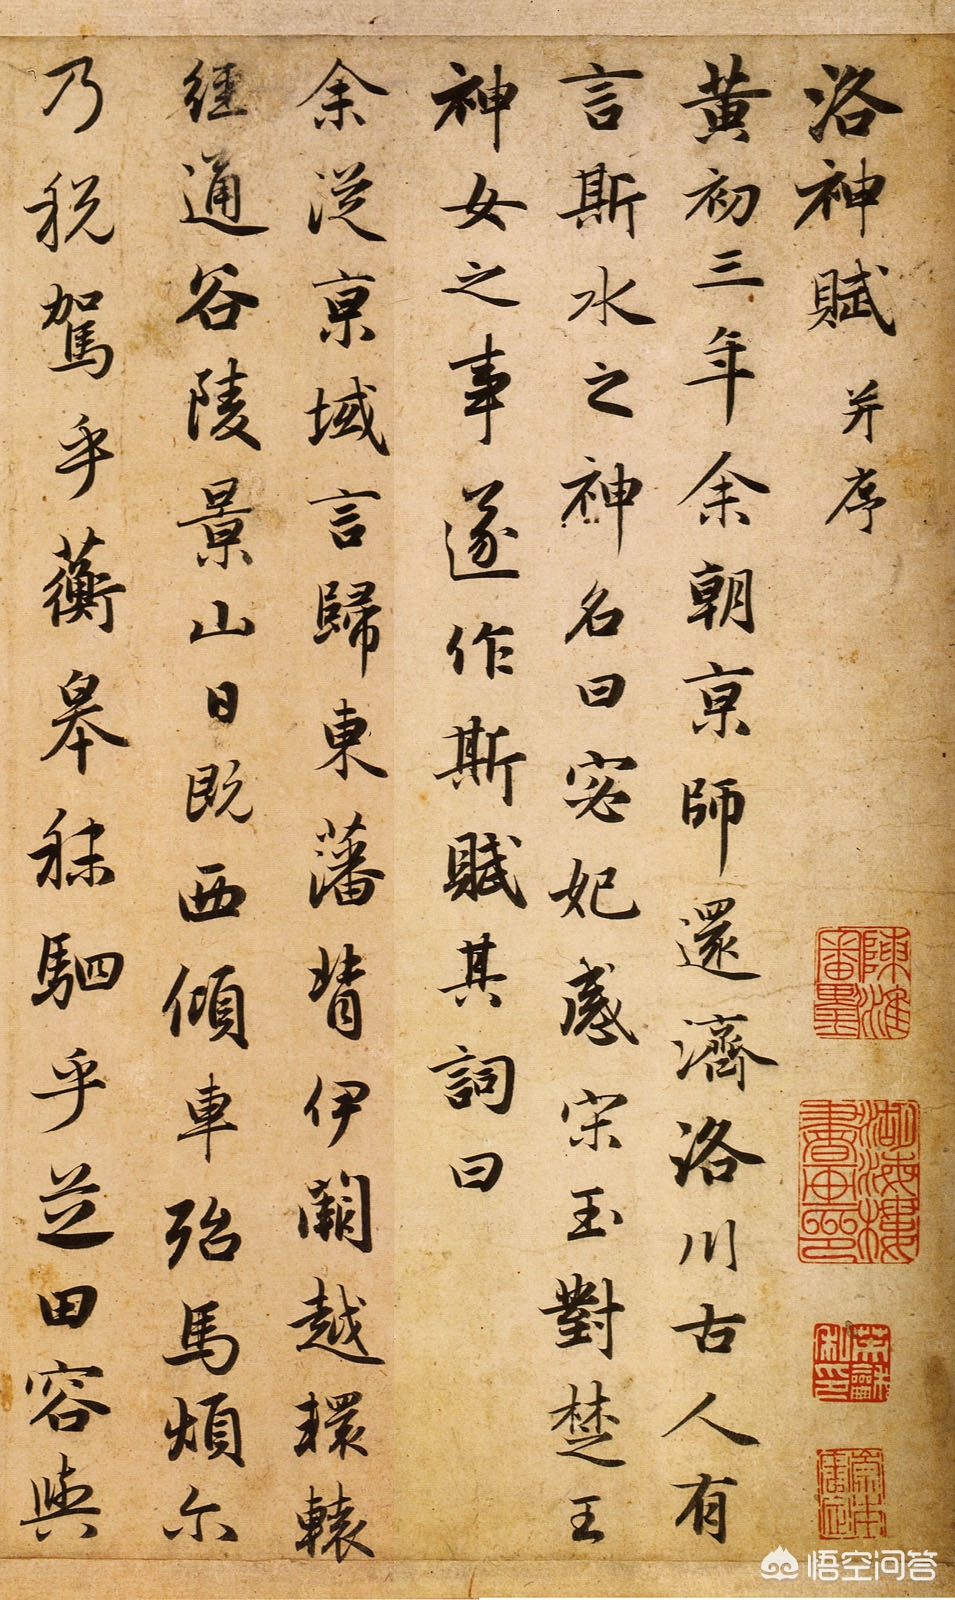 洛神賦 并序
黄初三年余朝京師還濟洛川古人有
言斯水之神名曰宓妃感宋玉對楚王
神女之事遂作斯賦其詞曰
余從京域言歸東藩背伊闕越轘轅
經通谷陵景山日既西傾車殆馬煩尔
乃税駕乎蘅皋秣駟乎芝田容與
悟空问答